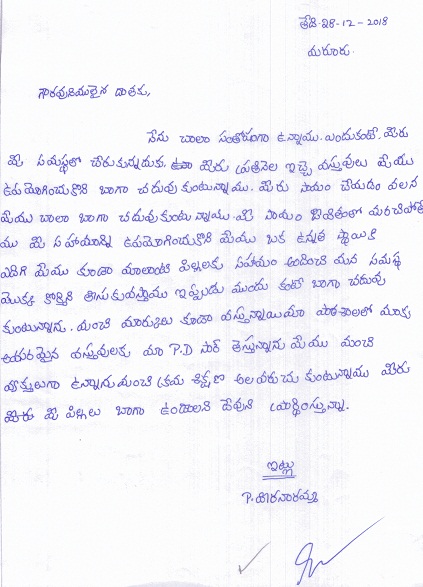 తేది-28-12-2018
మరూరు.
గౌరవనీయులైన దాతకు,
నేను చాలా సంతోషంగా ఉన్నాము. ఎందుకంటే, మీరు
మీ సమస్థలో చేరుకున్నదుకు. మీరు ప్రతినెల ఇచ్చె వస్తువులు మేము
ఉపయోగించుకొని బాగా చదువుకుంటున్నాము. మీరు సాయం చేయడం వలన
మేము చాలా బాగా చదువుకుంటున్నాము. మీ సాయం జీవితంలో మరచిపోలే
ము మీ సహాయాన్ని ఉపయోగించుకొని మేము ఒక ఉన్నత స్థాయికి
ఎదిగి మేము కూడా మాలాంటి పిల్లలకు సహాయం అందించి మన సమస్థ
మొక్క కీర్తిని తీసుకువస్తాము ఇప్పుడు ముందు కంటే బాగా చదువు
కుంటున్నాను. మంచి మార్కులు కూడా వస్తున్నాయి మా పాఠశాలలో మాకు
అవసరమైన వస్తువులకు మా P.D సార్ తెస్తున్నారు మేము మంచి
వ్యక్తులుగా ఉన్నారు మంచి క్రమ శిక్షణ అలవరుచు కుంటున్నాము మీరు
మీరు మీ పిల్లలు బాగా ఉండాలని దేవుని ప్రార్థిస్తున్నా.
ఇట్లు
P. వీరనారమ్మ